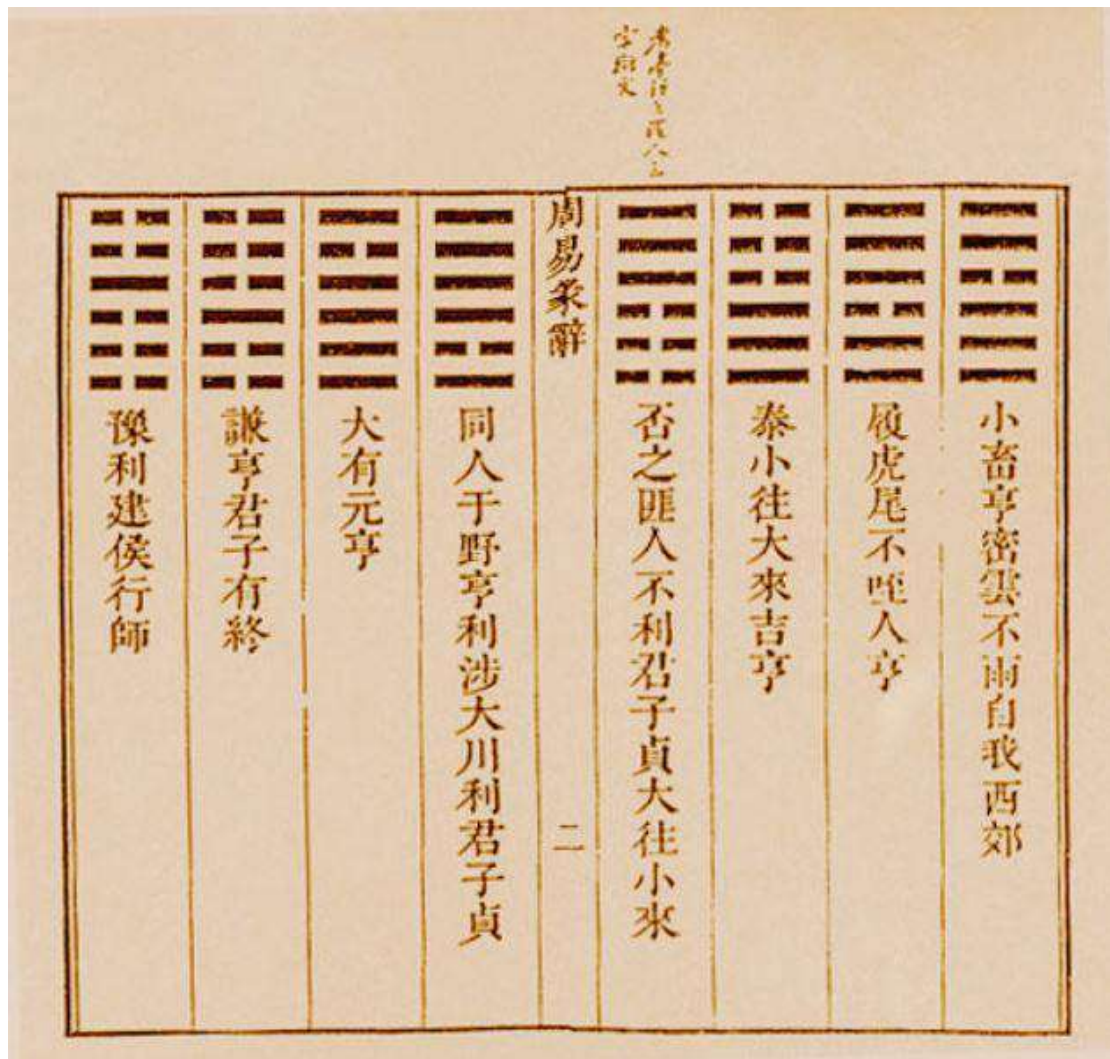 之匪人三
字衍文
小畜亨密雲不雨自我西郊
履虎尾不咥人亨
泰小往大來吉亨
否之匪人不利君子貞大往小來
周易彖辭
二
同人于野亨利涉大川利君子貞
大有元亨
謙亨君子有終
豫利建侯行師